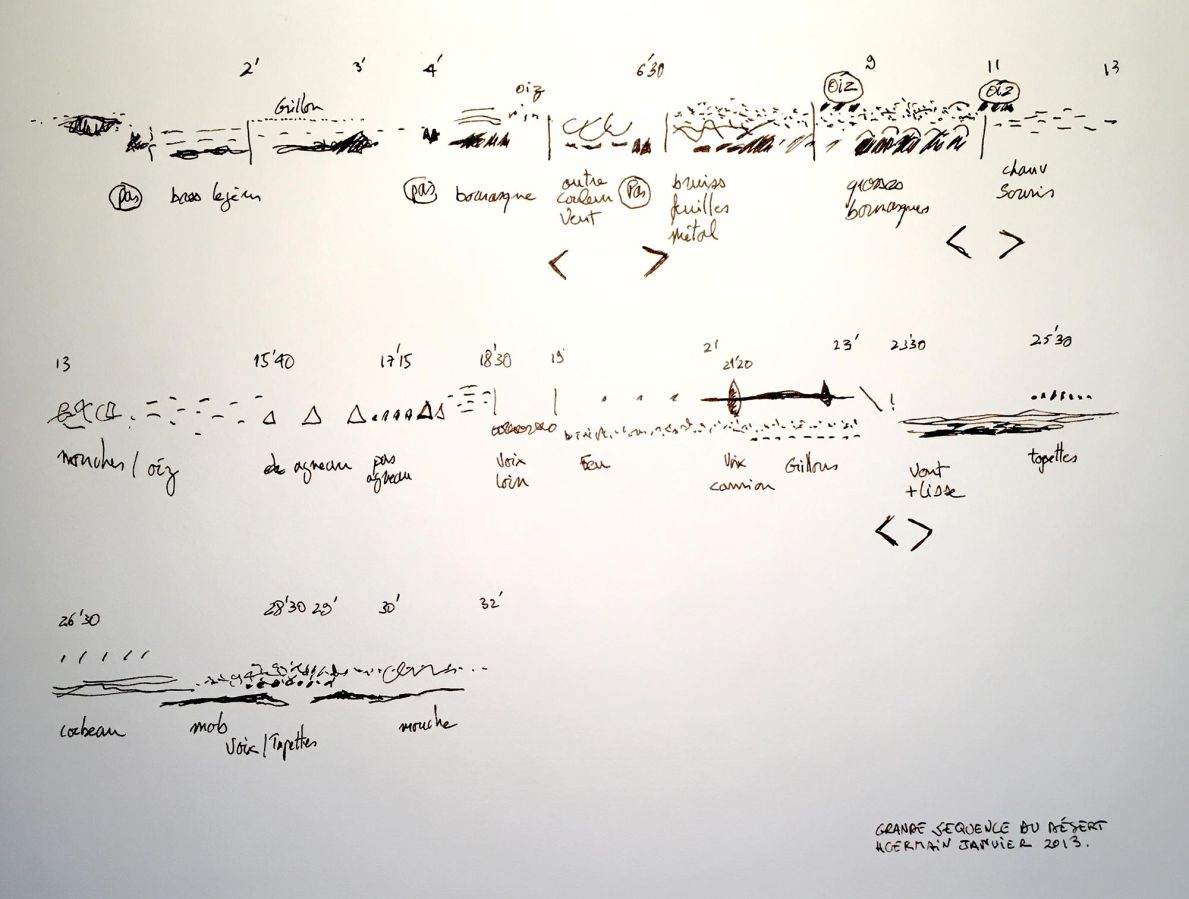 2' 3' 4' 6'30 9 11 13
Grillon oiz oiz oiz
pas bass pas bourrasque outre pas bruiss grosses chauv
couleur feuilles bourrasques souris
vent métal
< > < >
13 15'40 17'15 18'30 19' 21' 21'20 23' 23'30 25'30
!
mouches / oiz agneau pas voix Feu voix Grillons vent tapettes
agneau loin camion + lisse
< >
26'30 28'30 29' 30' 32'
corbeau mob mouche
voix / Tapettes
GRANDE SEQUENCE DU DÉSERT
HGERMAIN JANVIER 2013.